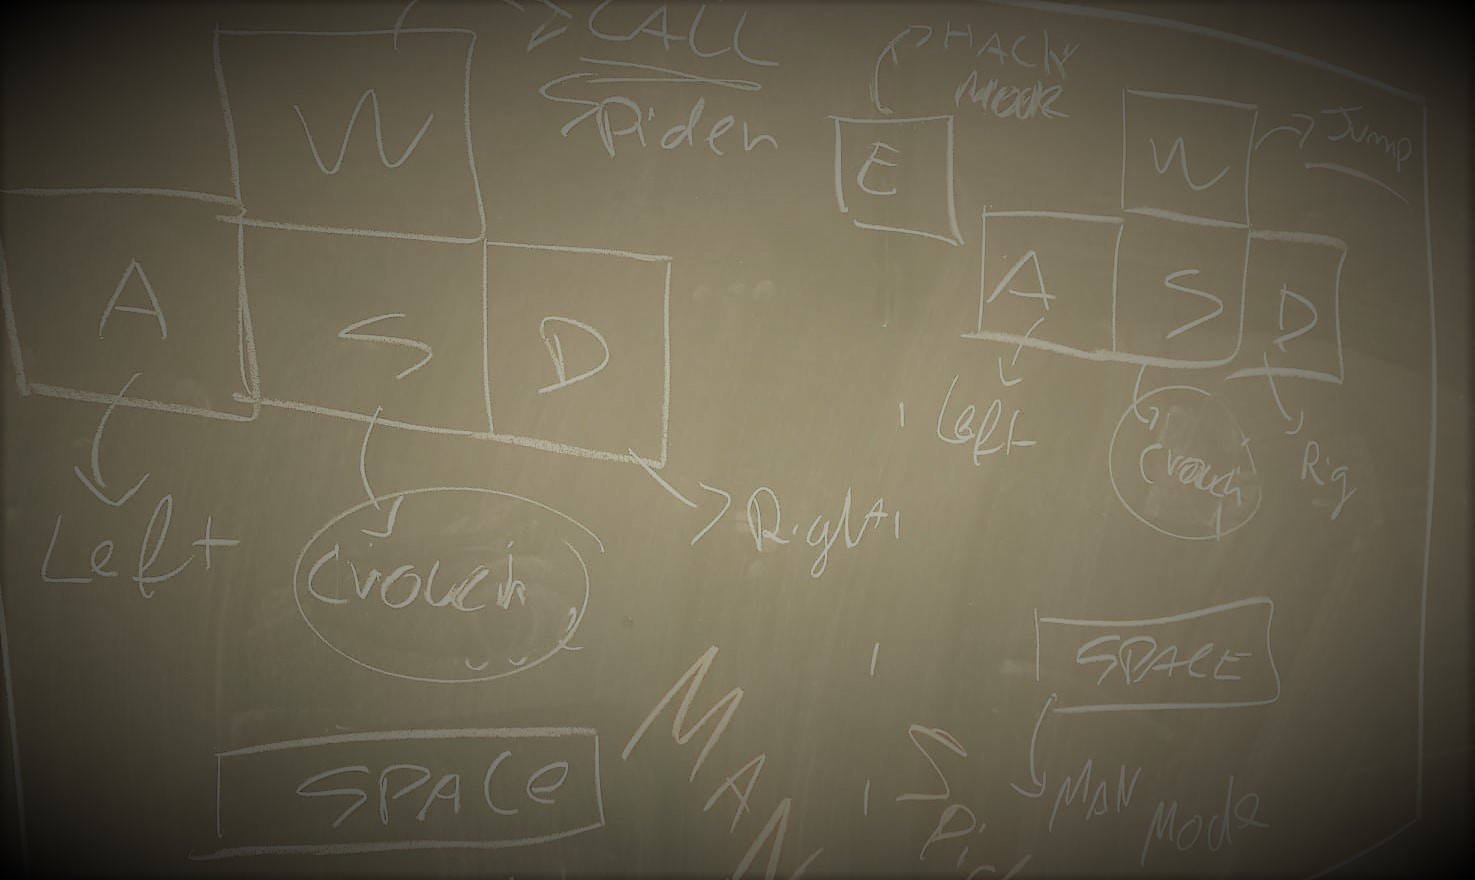 CALL
Spider
W
A
S
D
Left
Crouch
Right
SPACE
MAN
HACK
MODE
E
W
Jump
A
S
D
Left
Crouch
Rig
SPACE
MAN
Mode